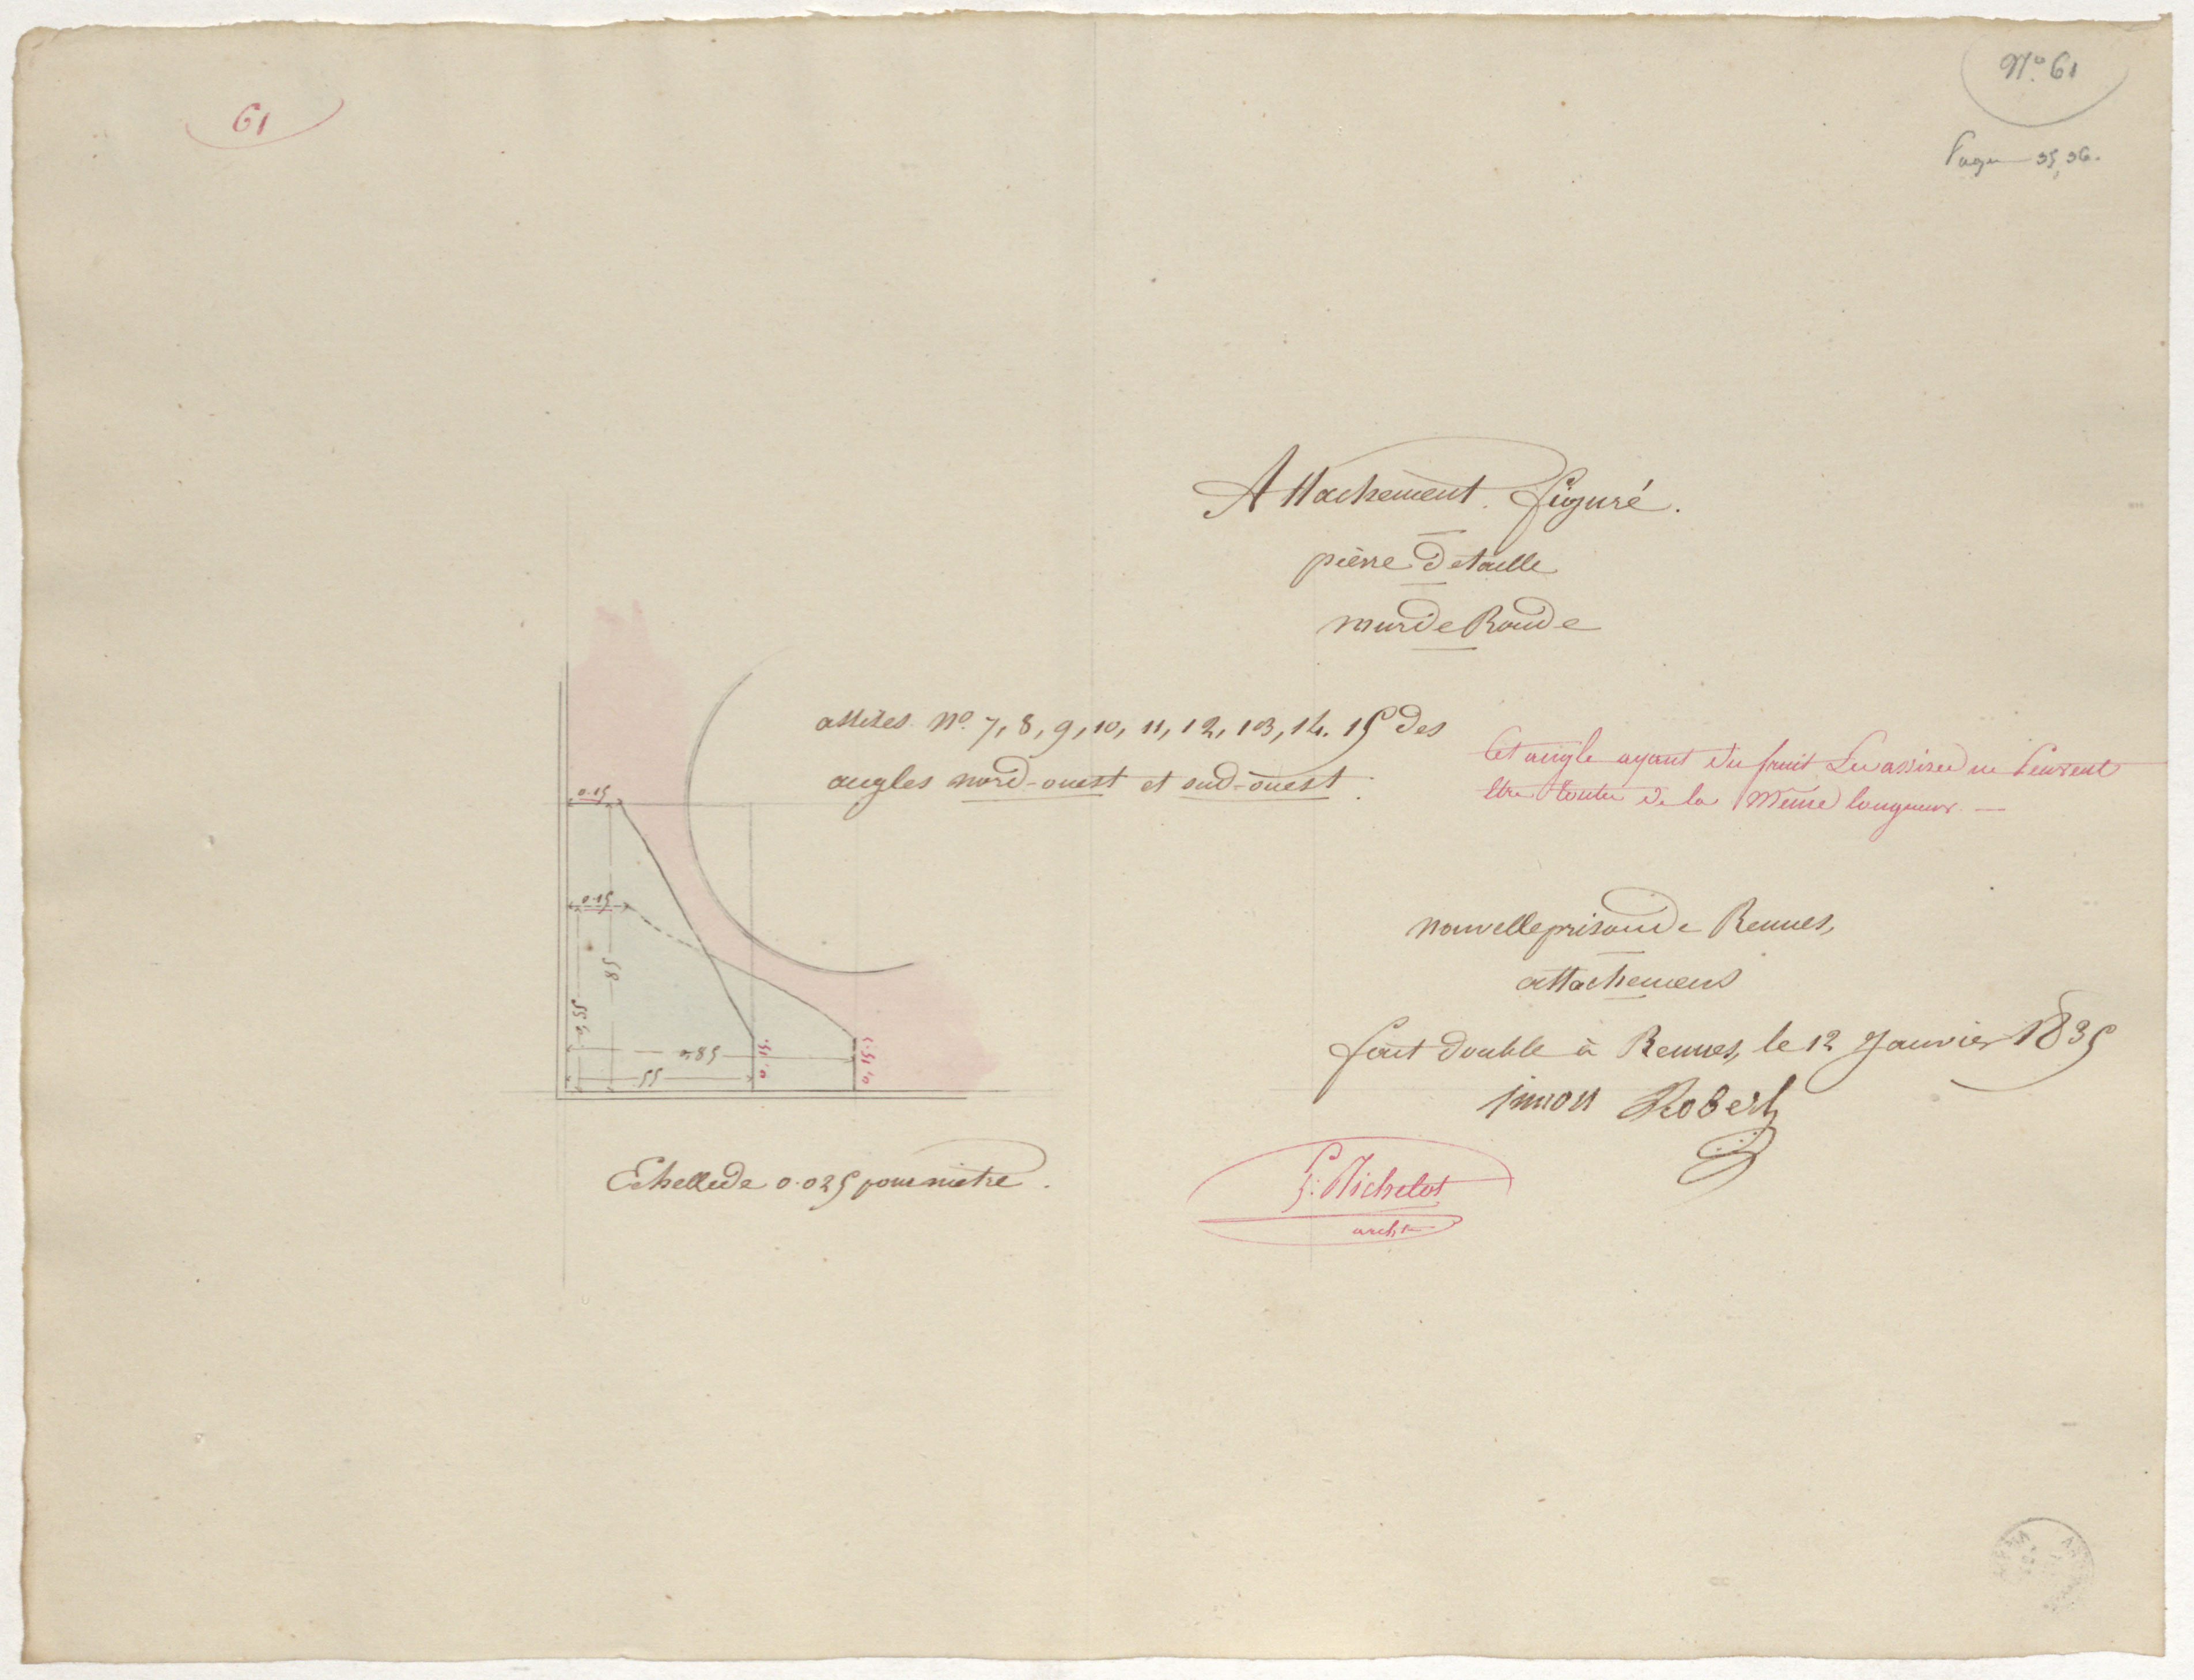 61
N° 61
Page 35, 36.
Attachement figuré.
pièrre de taille
mur de Ronde
assises N° 7, 8, 9, 10, 11, 12, 13, 14. 15 des
angles nord-ouest et sud-ouest.
Cet angle ayant du fruit Les assises ne Peuvent
Etre toutes de la Même longueur. —
0.15
0.15
85
0.55
0,85
55
0,15.
0,15.
nouvelle prison de Rennes,
attachemens
fait double à Rennes, le 12 Janvier 1835
Robert
Echelle de 0.025 pour mètre.
Michelot
archte